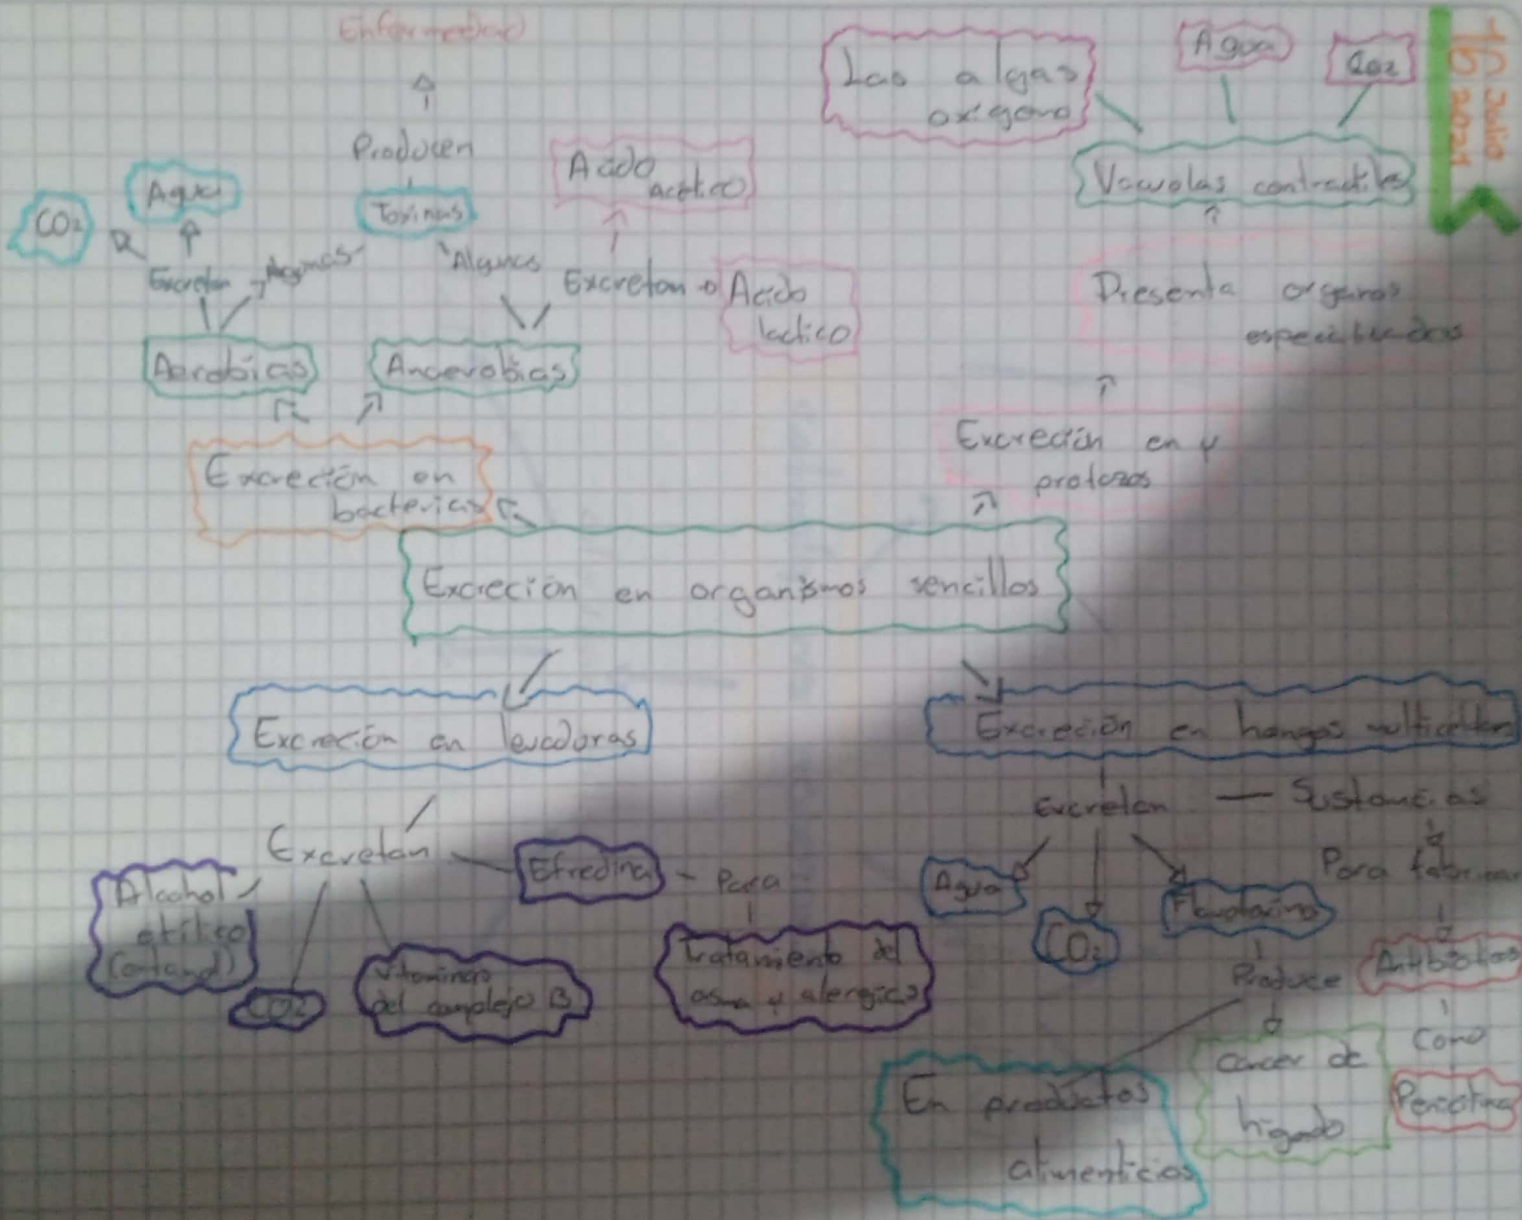 Enfermedad
Producen
Toxinas
Agua
CO2
Excretan
Algunas
Algunas
Aerobias
Anaerobias
Excretan
Acido
acético
Acido
lactico
Excreción en
bacterias
Las algas
oxigeno
Agua
CO2
16 Julio
2021
Vacuolas contractiles
Presenta organos
especializados
Excreción en y
protozos
Excreción en organismos sencillos
Excreción en levadoras
Excretan
Alcohol
etílico
CO2
Vitaminas
del complejo B
Efredina
Para
tratamiento del
asma y alergias
Excreción en hongos
Excretan
Sustancias
Agua
CO2
Para fabricar
Antibióticos
Como
Produce
Cancer de
higado
En productos
alimenticios